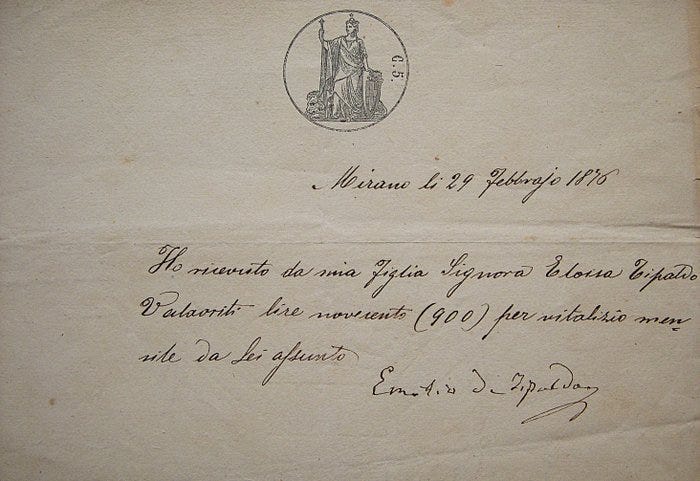 G. 5.
Mirano li 29 Febbrajo 1876
Ho ricevuto da mia figlia Signora Eloisa Tipaldo
Valaoriti lire novecento (900) per vitalizio men-
sile da Lei assunto
Emilio De Tipaldo